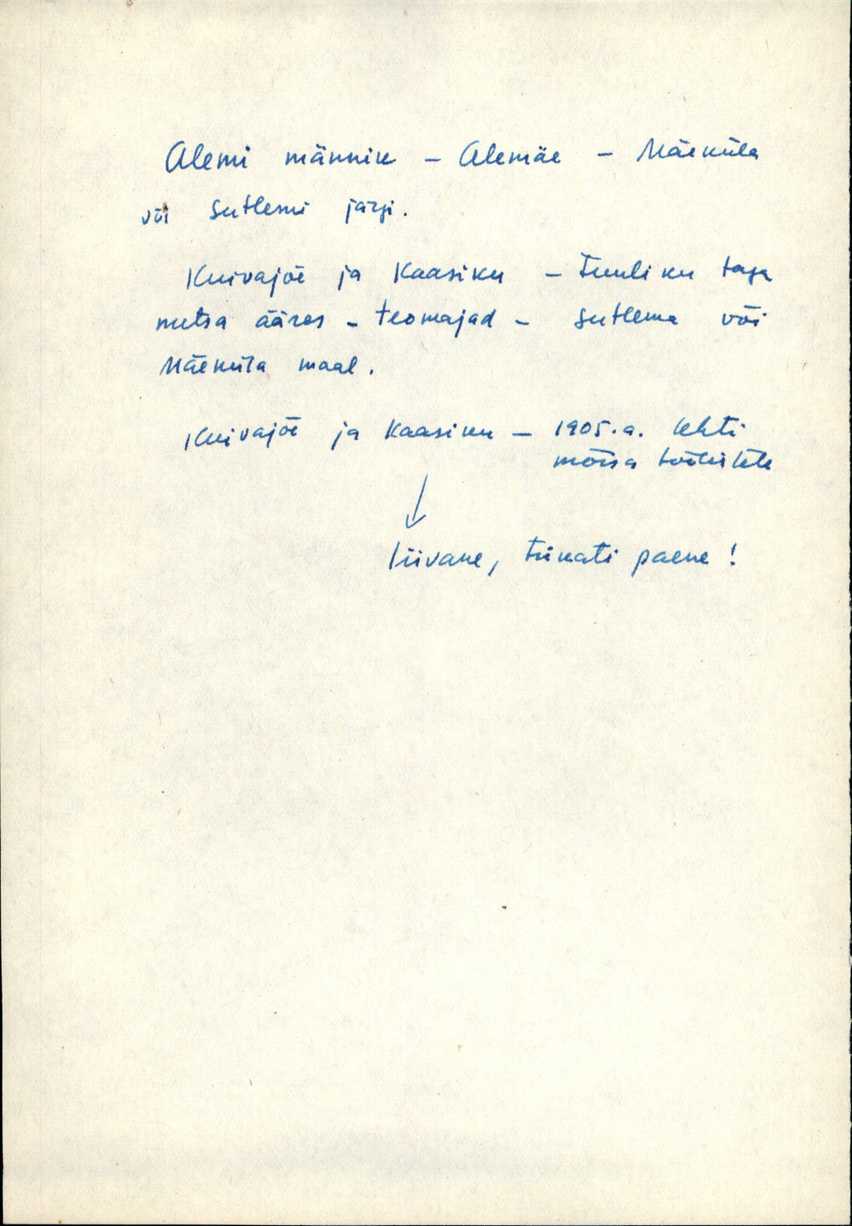 Alemi männik – Alemäe – Mäeküla
või Sutlemi järgi.
Kuivajõe ja Kaasiku – Tuuliku taga
metsa ääres – teomajad – Sutlema või
Mäeküla maal.
Kuivajõe ja Kaasiku – 1905.a. lehti
mõisa töölistele
↓
liivane, tükati paene!